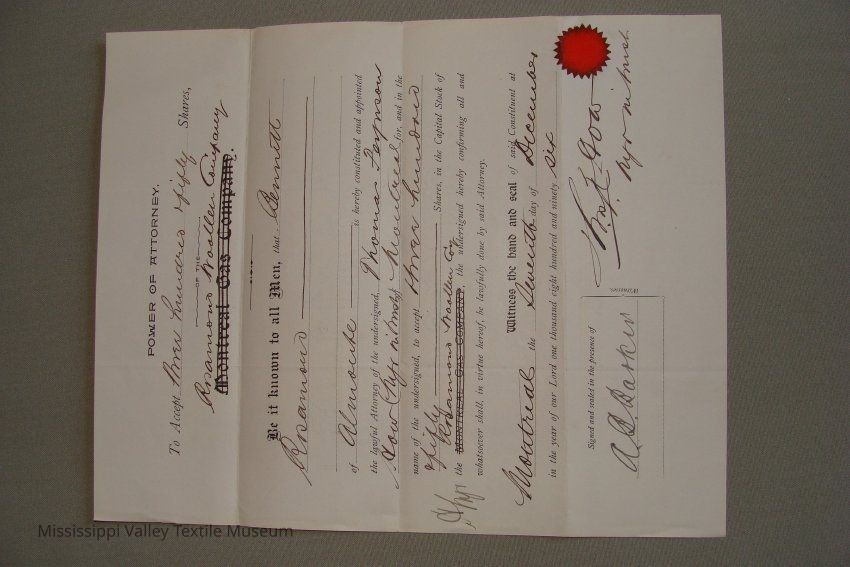 POWER OF ATTORNEY.
To Accept Three hundred & fifty Shares,
OF THE
Rosamond Woollen Company
Montreal Gas Company.
Be it known to all Men, that Bennett
Rosamond
of Almonte is hereby constituted and appointed
the lawful Attorney of the undersigned, Thomas
Montreal for, and in the
name of the undersigned, to accept three hundred
fifty Shares, in the Capital Stock of
Rosamond Woollen Coy
the MONTREAL GAS COMPANY, the undersigned hereby confirming all and
whatsoever shall, in virtue hereof, be lawfully done by said Attorney.
Witness the hand and seal of said Constituent at
Montreal the Seventh day of December
in the year of our Lord one thousand eight hundred and ninety six
Signed and sealed in the presence of
Witnesses.
in trust
Mississippi Valley Textile Museum